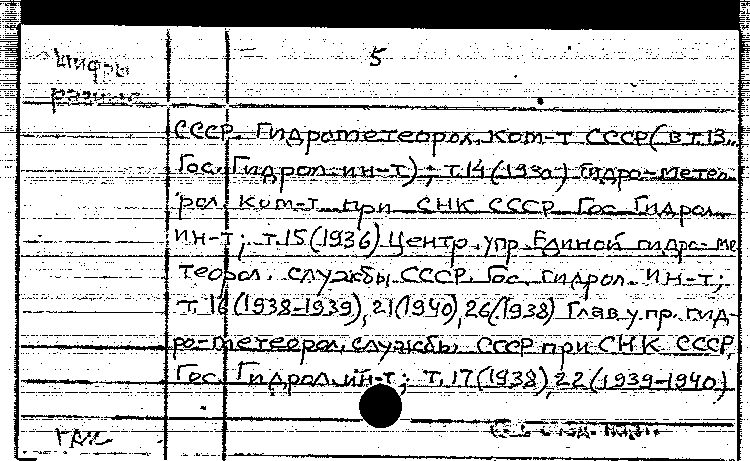 Шифры 5
разные
СССР. Гидрометеорол. ком-т СССР (в т. 13..
Гос. Гидрол. ин-т); т. 14 (193 ) Гидро-метео
рол. ком-т при СНК СССР. Гос. Гидрол.
ин-т; т. 15 (1936) Центр. упр. Единой гидро-ме
теорол. службы СССР. Гос. гидрол. ин-т;
т. 18 (1938-1939), 21 (1940), 26 (1938) Глав. упр. гид-
ро-метеорол. службы СССР при СНК СССР.
Гос. Гидрол. ин-т; т. 17 (1938), 22 (1939-1940)